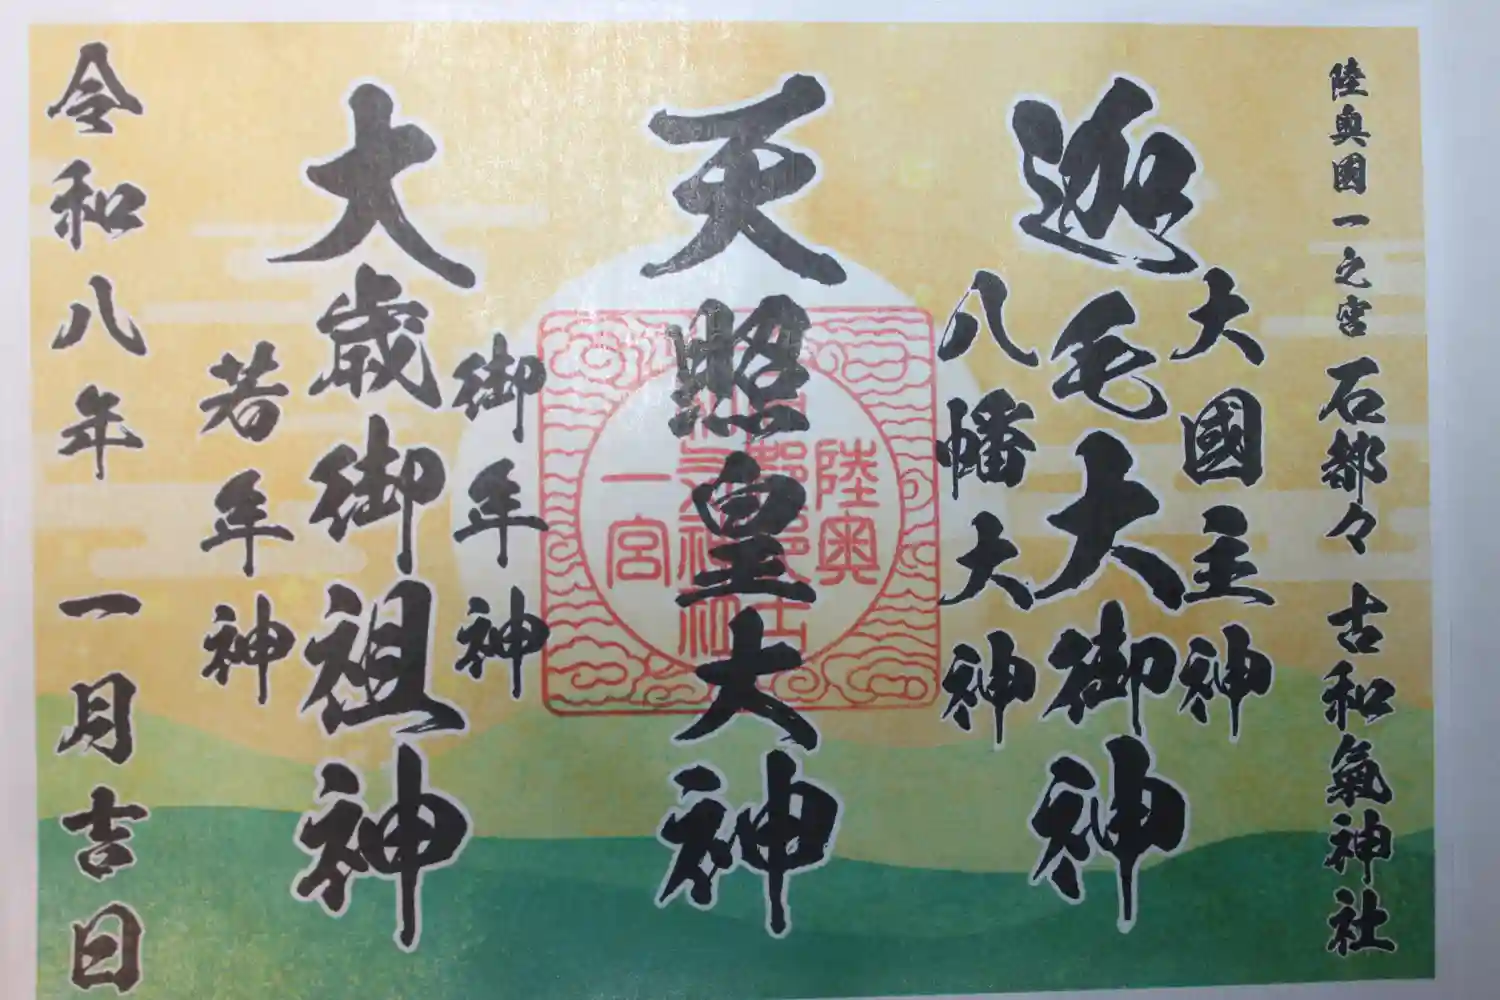 陸奥国一之宮 石都々古和氣神社
大國主神
迦毛大御神
八幡大神
天照皇大神
御年神
大歳御祖神
若年神
令和八年一月吉日
陸奥
石都都古
和気神社
一宮